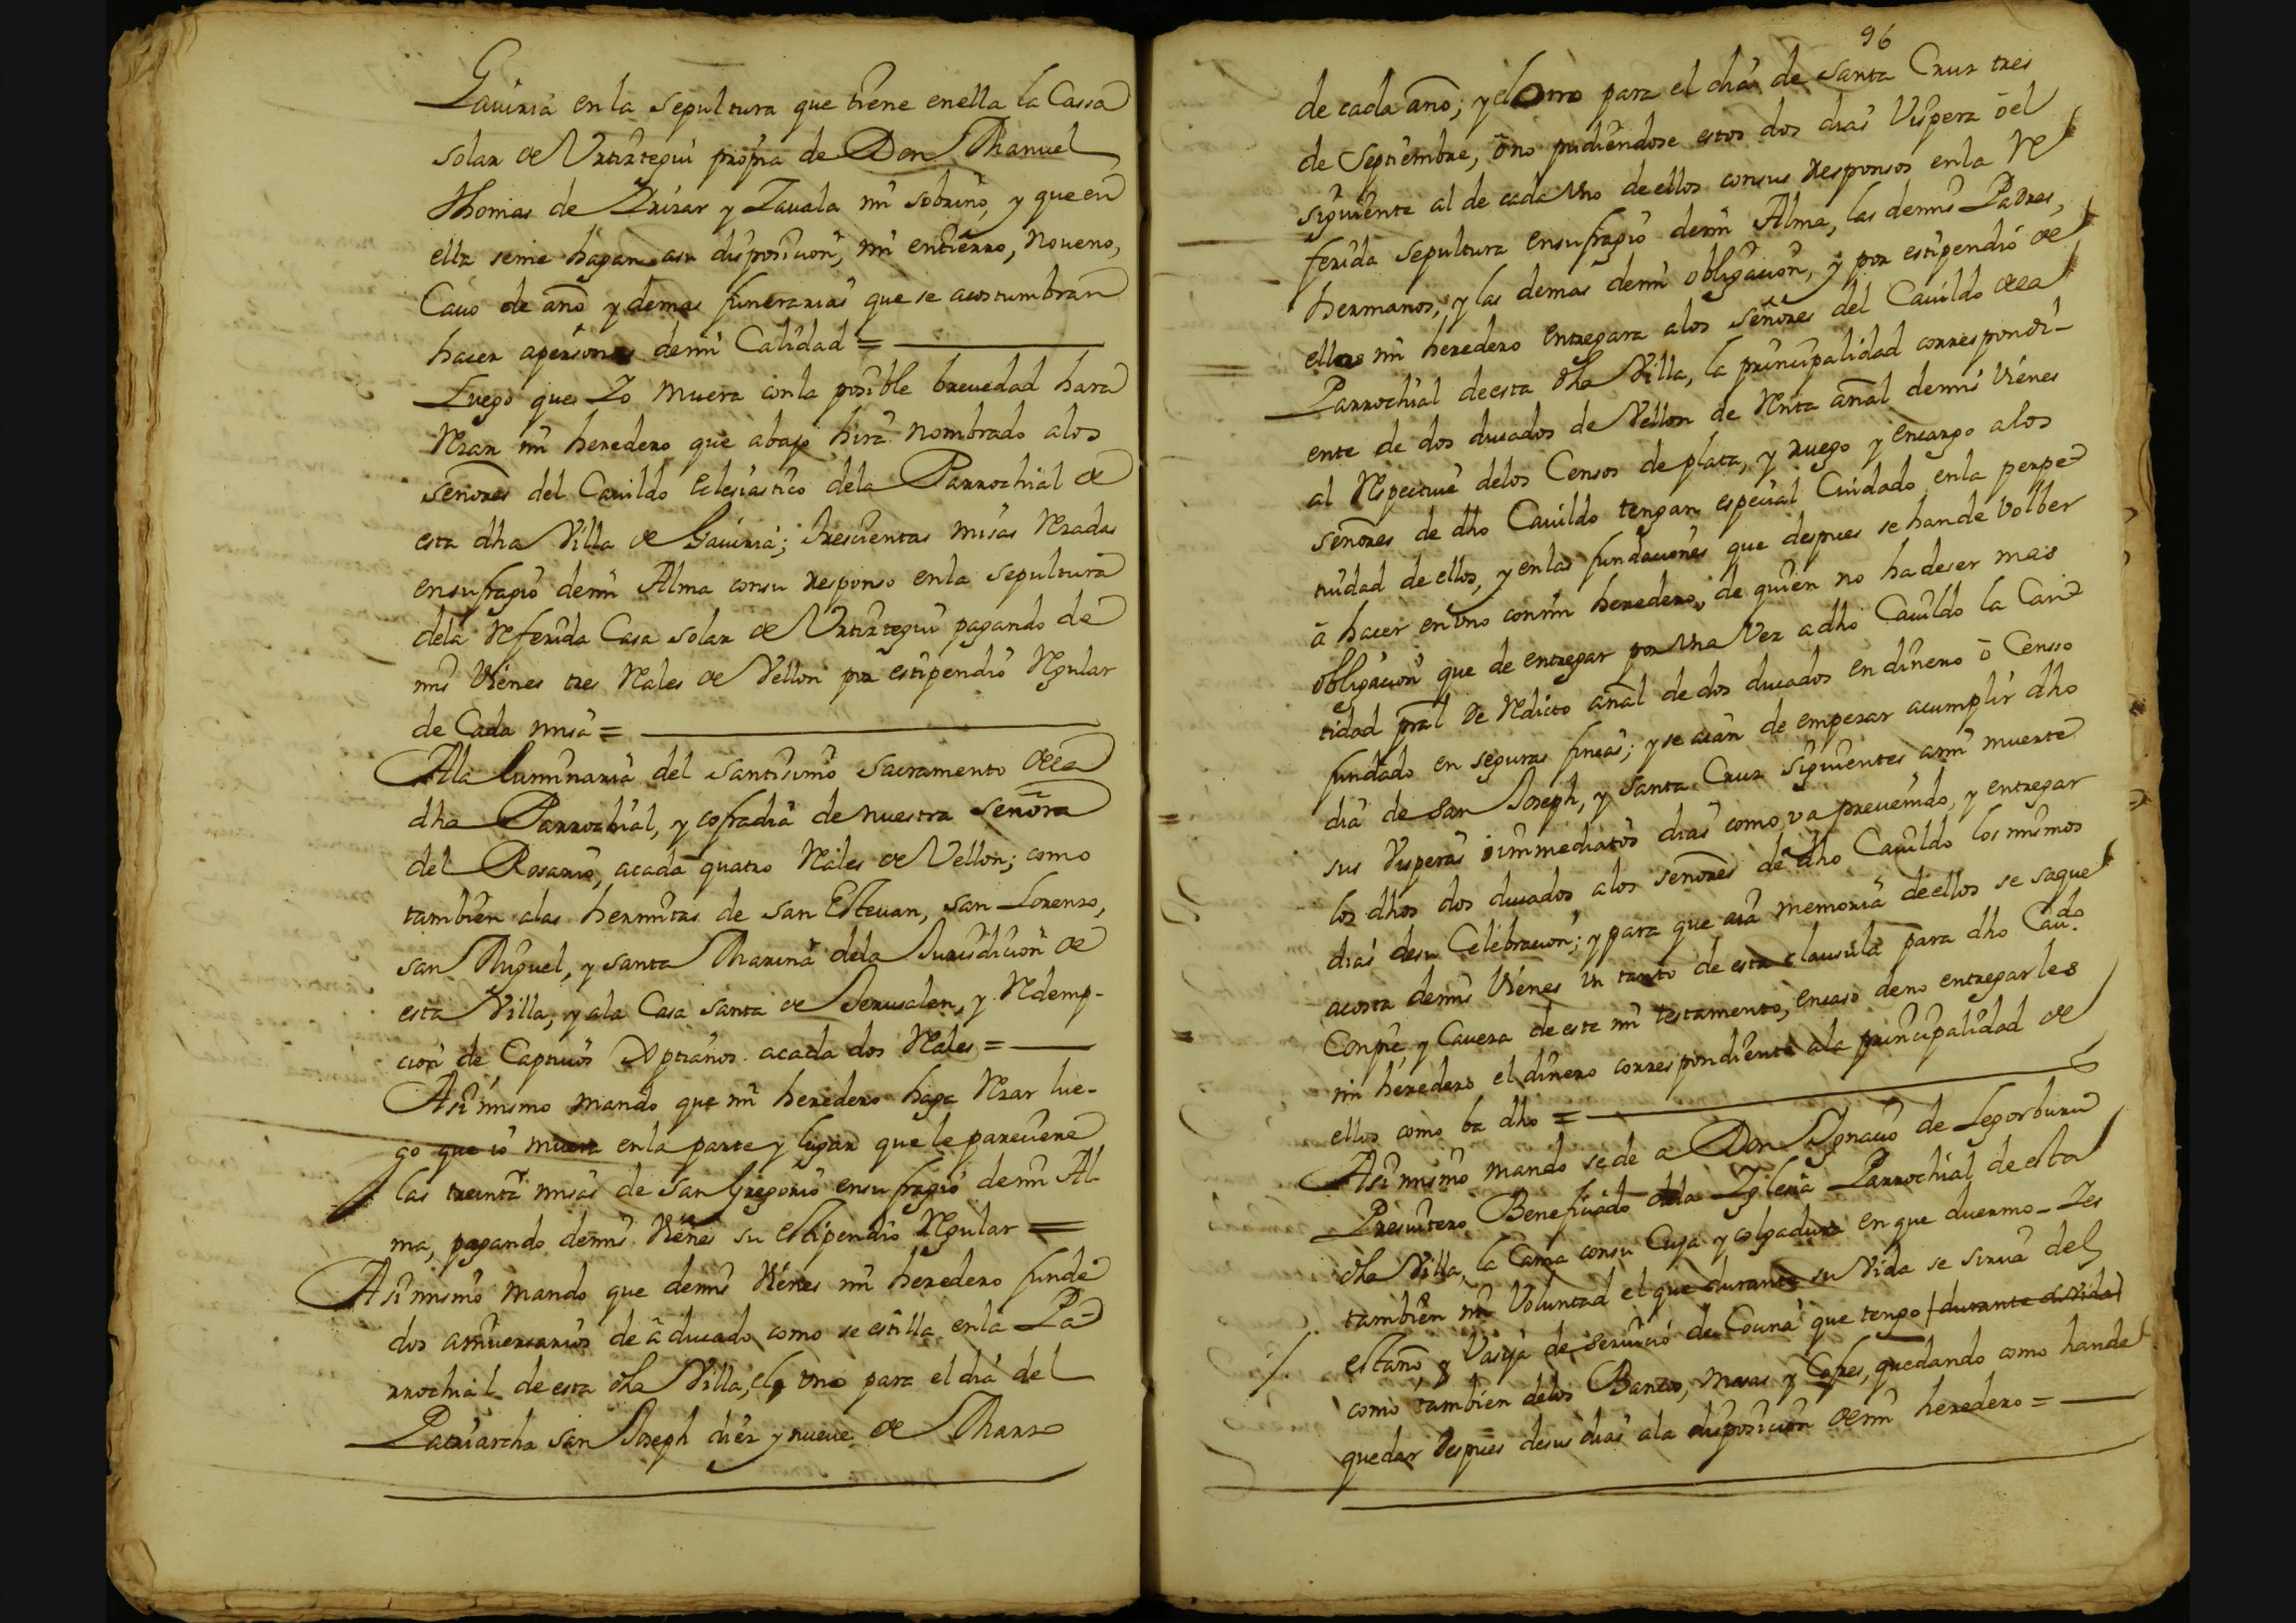 Gaviria en la sepultura que tiene enella la Cassa
solar de Urtiztegui propria de Don Manuel
Thomas de Irizar y Zavala mi sobrino, y que en
ella seme hagan asu disposicion, mi entierro, noveno,
Cavo de año y demas funerarias que se acostumbran
hacer apersonas demi Calidad =
Luego que Io muera conla posible brevedad hara
Rezar mi heredero que abajo hira nombrado alos
señores del Cavildo Eclesiastico dela Parrochial de
esta dha Villa de Gaviria; trescientas misas Rezadas
ensufragio demi Alma consu responso enla sepultura
dela Referida Casa solar de Urtiztegui pagando de
mis Vienes tres Reales de Vellon por estipendio Regular
de Cada misa =
Ala luminaria del santisimo sacramento dela
dha Parrochial, y cofradia de nuestra señora
del Rosario, acada quatro Reales de Vellon; como
tambien alas hermitas de san Estevan, san Lorenzo,
san Miguel, y santa Marina dela Jurisdicion de
esta Villa, y ala Casa santa de Jerusalen, y Redemp-
cion de Captivos Xptianos acada dos Reales =
Asimismo mando que mi heredero haga Rezar lue-
go que io muera enla parte y lugar que le pareciere
las treinta misas de san Gregorio ensufragio demi Al-
ma, pagando demis Vienes su estipendio Regular =
Asimismo mando que demis Vienes mi heredero funde
dos aniversarios de â ducado como se estilla enla Pa-
rrochial de esta dha Villa, el uno para el dia del
Patriarcha san Joseph diez y nueve de Marzo
96
de cada año; y elotro para el dia de santa Cruz tres
de septiembre, ôno pudiendose estos dos dias Vispera ôel
siguiente al de cada Uno deellos consus Responsos enla Re
ferida sepultura ensufragio demi Alma, las demis Padres,
hermanos, y las demas demi obligacion, y por estipendio de
ellos mi heredero entregara alos señores del Cavildo dela
Parrochial deesta dha Villa, la principalidad correspondi-
ente de dos ducados de Vellon de Renta añal demis Vienes
al Respective delos Censos de plata, y ruego y encargo alos
señores de dho Cavildo tengan especial Cuidado enla perpe-
tuidad de ellos, y enlas fundaciones que despues se hande bolber
â hacer enUno conmi heredero, de quien no hadeser mas
obligacion que de entregar por Una Vez adho Cavildo la Can-
tidad pral de Redicto añal de dos ducados endinero ô Censso
fundado en seguras fincas; y se aian de empezar acumplir dho
dia de san Joseph, y santa Cruz siguientes ami muerte
sus Visperas ô immediatos dias como va prevenido, y entregar
los dhos dos ducados alos señores de dho Cavildo los mismos
dias desu Celebracion; y para que aia memoria deellos se saque
acosta demis Vienes Un tanto de esta clausula para dho Cavdo.
Conpie, y Caveza de este mi testamento, encaso deno entregarles
mi heredero el dinero correspondiente ala principalidad de
ellos como ba dho =
Asimismo mando sede a Don Ignacio de Legorburu
Presvitero Beneficiado dela Iglesia Parrochial de esta
dha Villa, la Cama consu Cuja y colgadura en que duermo - Ies
tambien mi Voluntad el que durante su Vida se sirva del
estaño, y Vasija de servicio de Cocina que tengo durante su Vida
como tambien delos Bancos, mesas y Cofres, quedando como hande
quedar despues desus dias ala disposicion demi heredero =